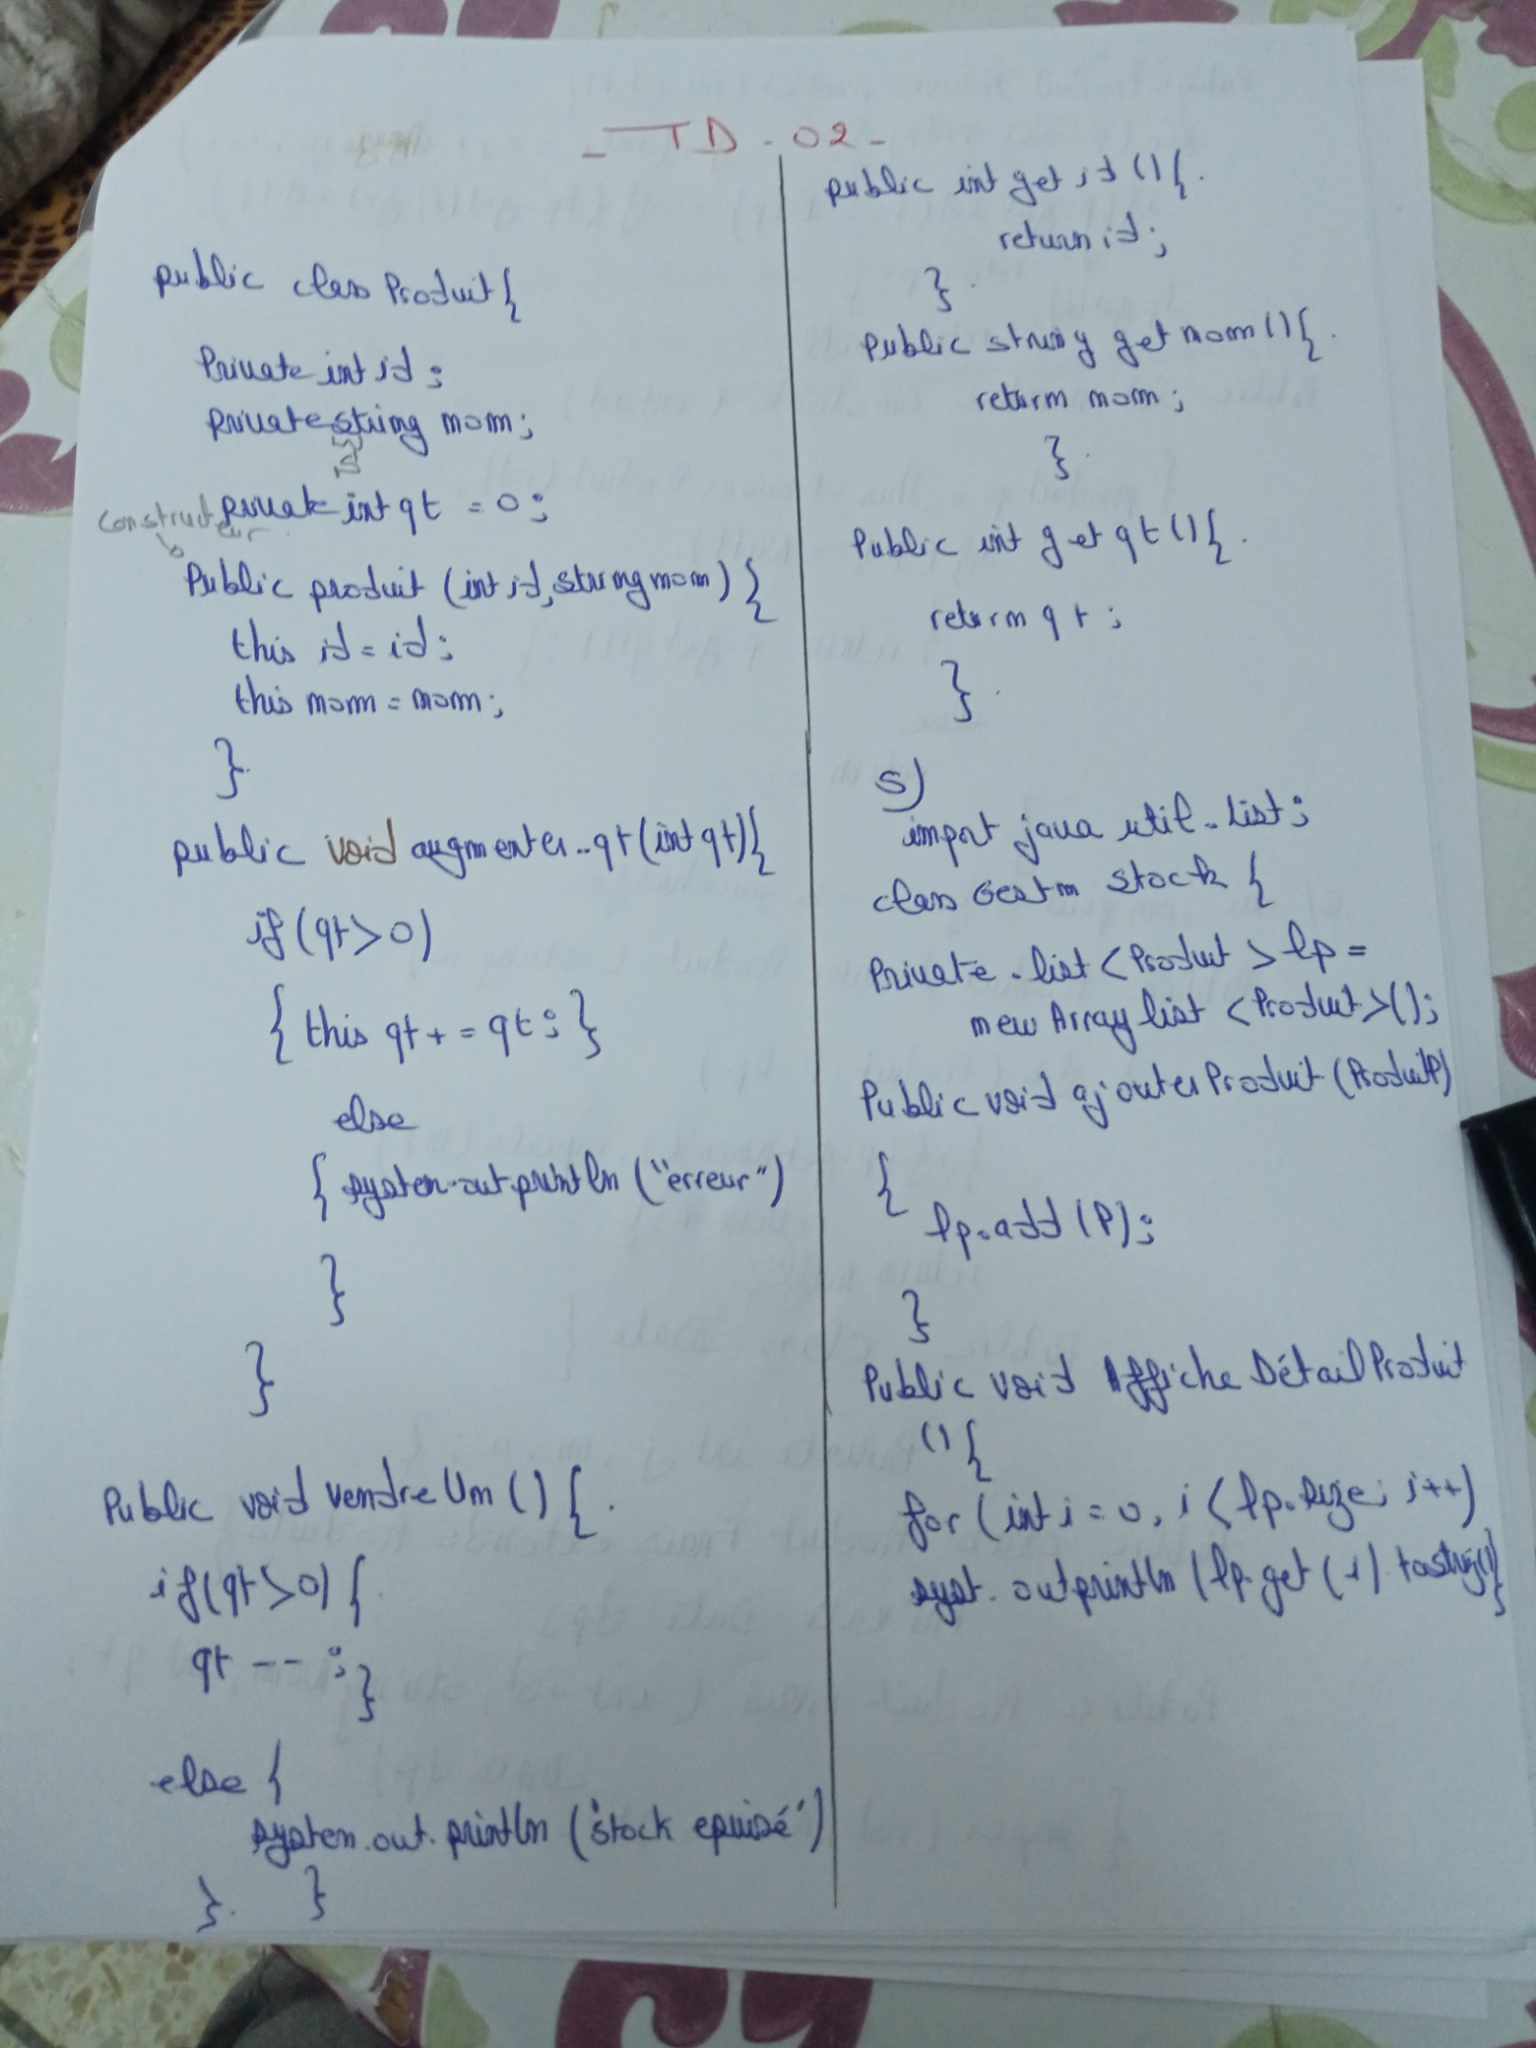 - TD - 02 -
public class Produit {
Private int id ;
private string nom ;
S
private int qt = 0 ;
constructeur
Public produit (int id, string nom) {
this id = id ;
this nom = nom ;
}
public void augmenter_qt (int qt) {
if (qt > 0)
{ this qt + = qt ; }
else
{ system.out.println ("erreur")
}
}
Public void vendre Un () {
if (qt > 0) {
qt -- ; }
else {
system.out.println ("stock epuisé")
} . }
public int get id () {
return id ;
}
Public string get nom () {
return nom ;
}
Public int get qt () {
return qt ;
}
5)
import java util . List ;
class Gestn stock {
Private . list < Produit > lp =
new Array list < Produit > () ;
Public void ajouter Produit (Produit P)
{
lp . add (P) ;
}
Public void Affiche Détail Produit
() {
for (int i = 0, i < lp . size ; i ++)
syst . out println (lp . get (i) . tostrig () }